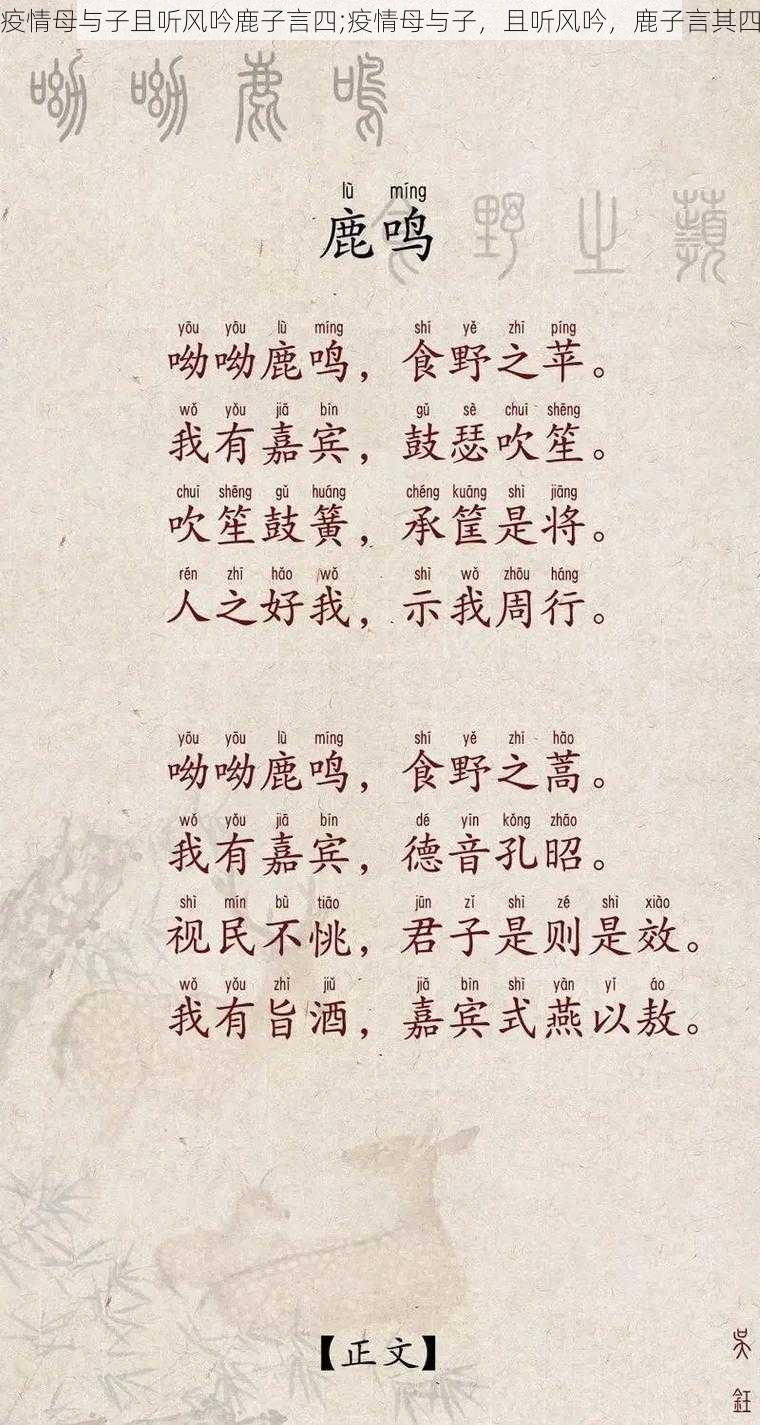 疫情母与子且听风吟鹿子言四;疫情母与子，且听风吟，鹿子言其四
呦呦鹿鸣
食野之蘋
lù míng
鹿鸣
yōu yōu lù míng shí yě zhī píng
呦呦鹿鸣，食野之苹。
wǒ yǒu jiā bīn gǔ sè chuī shēng
我有嘉宾，鼓瑟吹笙。
chuī shēng gǔ huáng chéng kuāng shì jiāng
吹笙鼓簧，承筐是将。
rén zhī hǎo wǒ shì wǒ zhōu háng
人之好我，示我周行。
yōu yōu lù míng shí yě zhī hāo
呦呦鹿鸣，食野之蒿。
wǒ yǒu jiā bīn dé yīn kǒng zhāo
我有嘉宾，德音孔昭。
shì mín bù tiāo jūn zǐ shì zé shì xiào
视民不恌，君子是则是效。
wǒ yǒu zhǐ jiǔ jiā bīn shì yàn yǐ áo
我有旨酒，嘉宾式燕以敖。
【正文】
吴
鈺